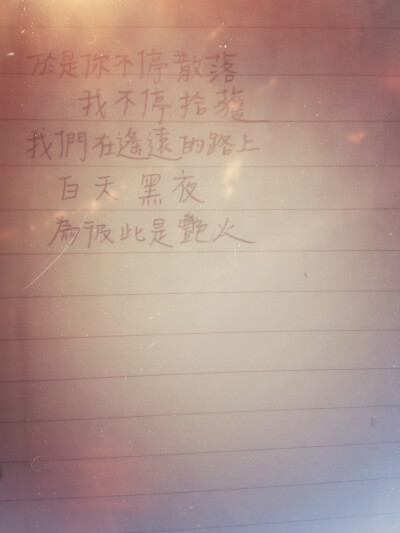 於是你不停散落
我不停拾獲
我們在遙遠的路上
白天黑夜
為彼此是艷火